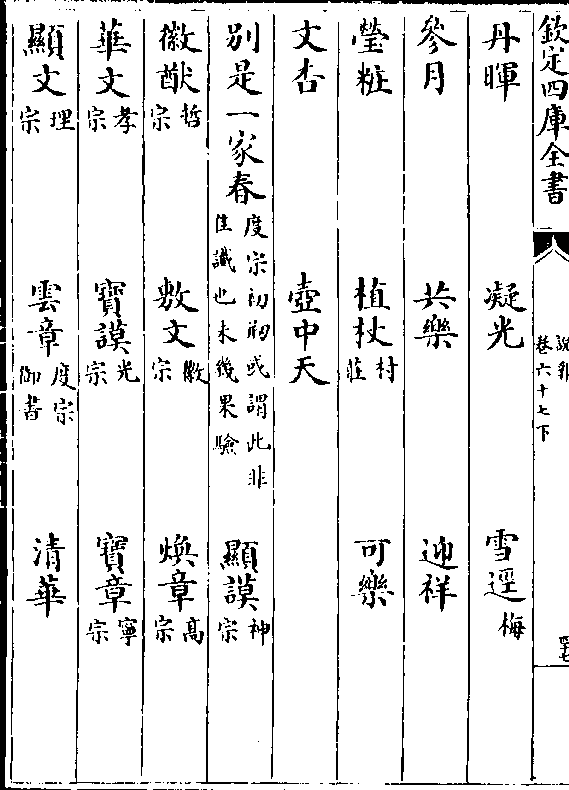 欽定四庫全書
說郛
卷六十七下
丹暉 凝光 雪逕梅
參月 共樂 迎祥
瑩粧 植杖村莊 可樂
文杏 壺中天
別是一家春度宗初刱或謂此非佳讖也未幾果驗 顯謨神宗
徽猷哲宗 敷文徽宗 煥章高宗
華文孝宗 寶謨光宗 寶章寧宗
顯文理宗 雲章度宗御書 清華